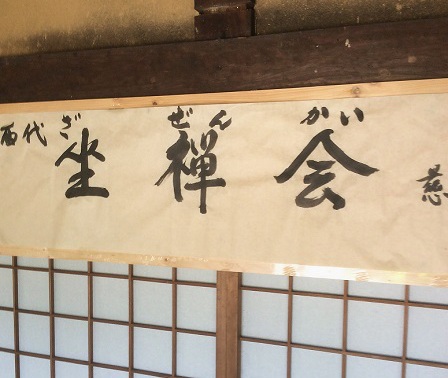 ざ ぜん かい
坐禅会 慈